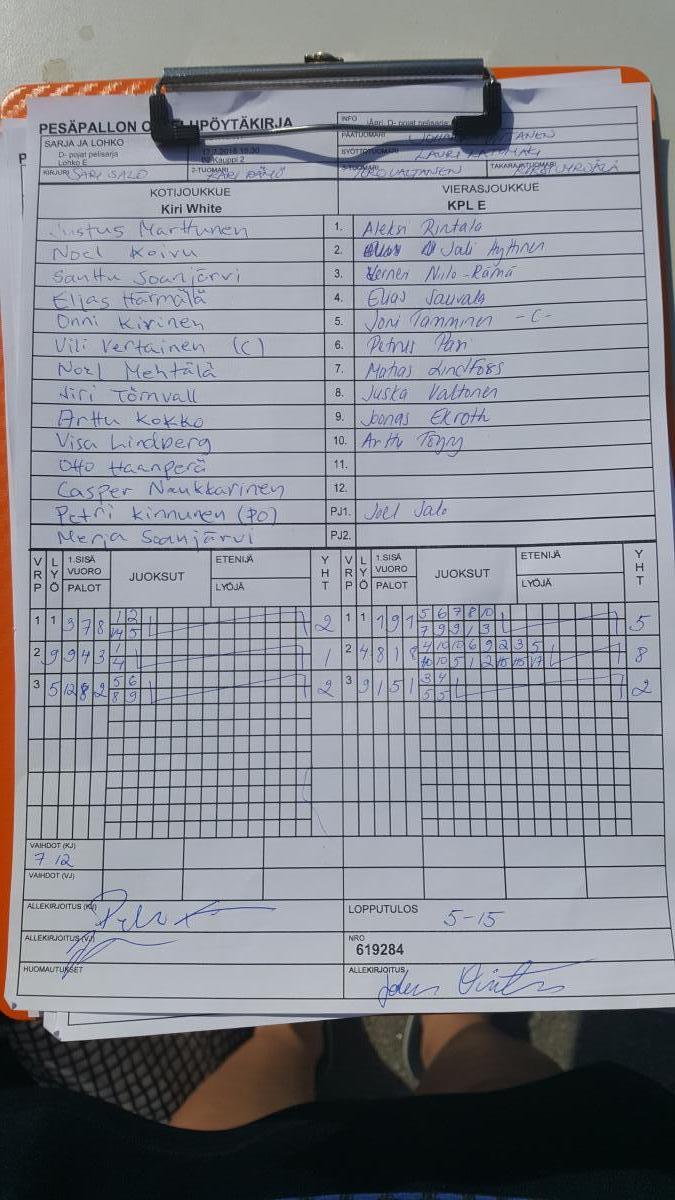 PESÄPALLON O LUPÖYTÄKIRJA
INFO
SARJA JA LOHKO
D- pojat pelisarja
PÄÄTUOMARI
Lohko E
Kauppi 2
SYÖTTÖTUOMARI LAURI
KIRJURI SARI SALO
2-TUOMARI KARI RÄMÖ
VALTANEN
TAKARAJATUOMARI
KOTIJOUKKUE
Kiri White
VIERASJOUKKUE
KPL E
Justus Marttunen 1. Aleksi Rintala
Noel Koivu 2. Jali Hyttinen
Santtu Soanjärvi 3. Verneri Niilo-Rämä
Elias Härmälä 4. Elias Sauvala
Onni Kivinen 5. Joni Tamminen -C-
Vili Vertainen (C) 6. Petrus Pari
Noel Mehtälä 7. Matias Lindfors
Jiri Törnvall 8. Juska Valtonen
Arttu Kokko 9. Joonas Ekroth
Visa Lindberg 10. Arttu
Otto Haanperä 11.
Casper Naukkarinen 12.
Petri Kinnunen (PO) PJ1. Joel Salo
Merja Soanjärvi PJ2.
VRP LYÖ 1.SISÄ VUORO PALOT JUOKSUT ETENIJÄ LYÖJÄ YHT VRP LYÖ 1.SISÄ VUORO PALOT JUOKSUT ETENIJÄ LYÖJÄ YHT
1 1 3 7 8 1 2 2 1 1 1 9 1 5 6 7 8 10 5
14 5 7 9 9 1 3
2 9 9 4 3 1 1 2 4 8 1 8 4 10 10 6 9 2 3 5 8
4 10 10 5 1 2 15 15 17
3 5 12 8 2 5 6 2 3 9 1 5 1 3 4 2
8 9 5 5
VAIHDOT (KJ)
7 12
VAIHDOT (VJ)
ALLEKIRJOITUS (KJ)
LOPPUTULOS 5-15
ALLEKIRJOITUS (VJ)
NRO
619284
HUOMAUTUKSET
ALLEKIRJOITUS